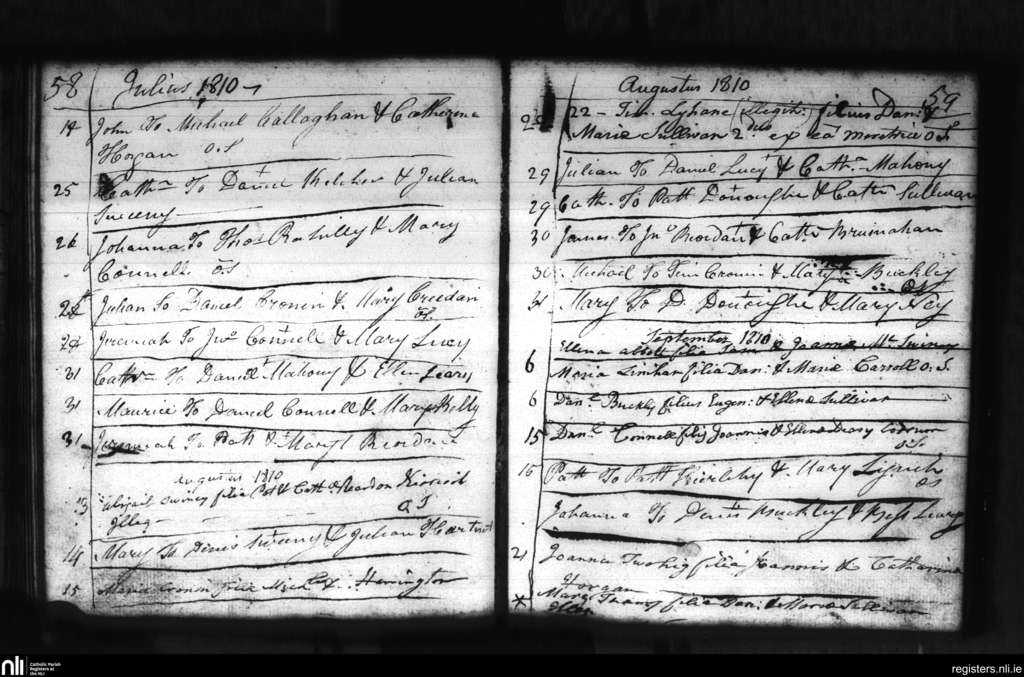 58 Julius 1810
John To Michael Callaghan & Catherine
Horgan os
25 Cath To Daniel Kelcher & Julian
Sweeny
26 Johanna To Thos Rahilly & Mary
Connell os
Julian To Daniel Cronin & Mary Creedan
os
Jeremiah To Jno Connell & Mary Lucy
31 Cathne To Daniel Mahony & Ellen Leary
31 Maurice To Daniel Connell & Mary Kelly
31 Jeremiah To Patt & Mary Reordan
Augustus 1810
Abigail Swiney filia Pat & Cath Reardon
Illeg
14 Mary To Denis Sweeny & Julian
15 Maria Cronin filia Michl & Herrington
59
Augustus 1810
22 - Tim. Lyhane (illegit: filius Dan: &
Maria Sullivan 2 ex ea o.s
29 Julian To Daniel Lucy & Cath Mahony
29 Cath To Patt Donoughe & Cath Sullivan
30 James To Jno Reordan & Cath Bruinahan
30 Michael To Tim Cronin & Mary Buckley
os
31 Mary To D. Donoughe & Mary
September 1810
Ellena filia & Joanna Mc Swiney
6 Maria Linihan filia Dan: & Maria Carroll o.s.
6 Danl Buckly filius Eugen: & Ellena Sullivan
15 Danl Connell filis Joannis & Ellena Deasy
o.s.
16 Patt To Patt & Mary
os
Johanna To Denis Buckley & Bess Leary
21 Joanna Twohig filia Joannis & Catharina
Horgan
* Mary filia Dan: & Maria Sullivan
nli
Catholic Parish
Registers at
the NLI
registers.nli.ie